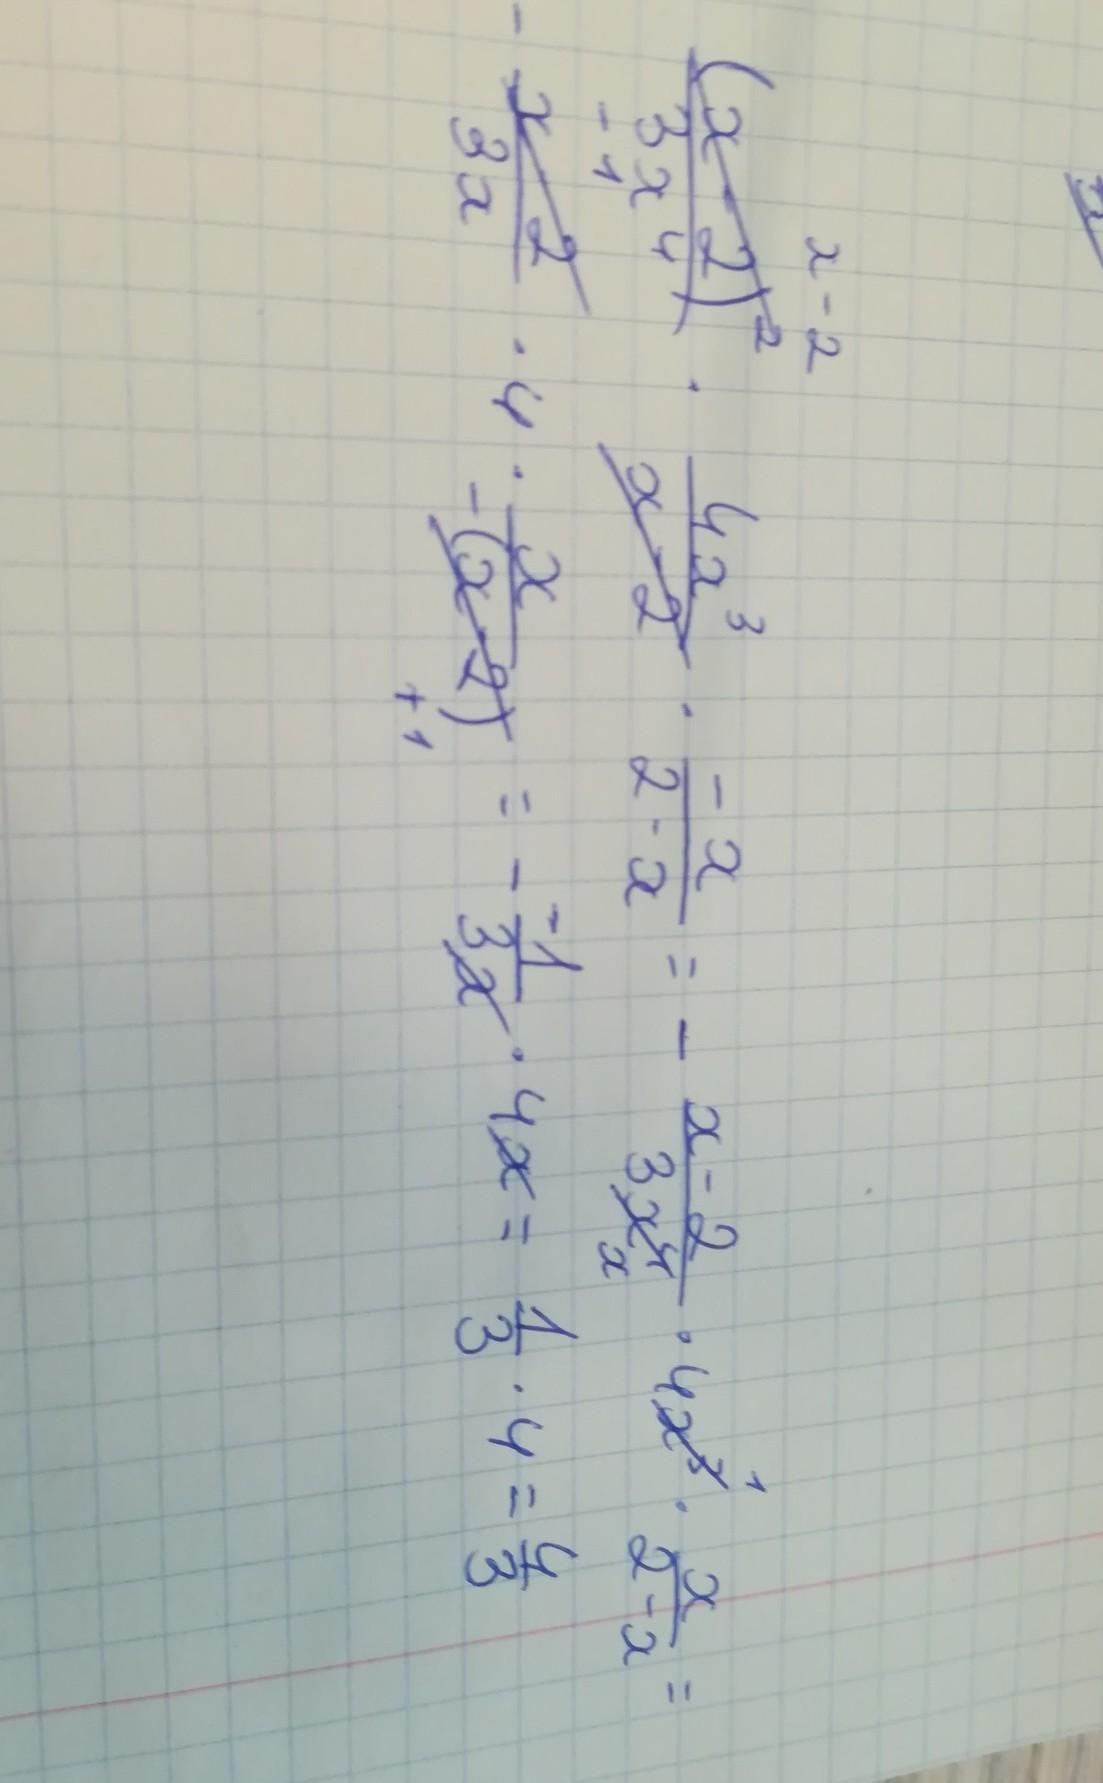 x-2
(x-2)²/3x⁴ · 4x³/x-2 · -x/2-x = - x-2/3x⁴ · 4x³ · x/2-x =
x 1
-1
- x-2/3x · 4 · x/-(x-2) = - -1/3x · 4x = 1/3 · 4 = 4/3
+1